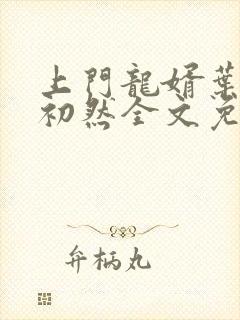 上門龍婿葉
初然全文免
弁柄丸